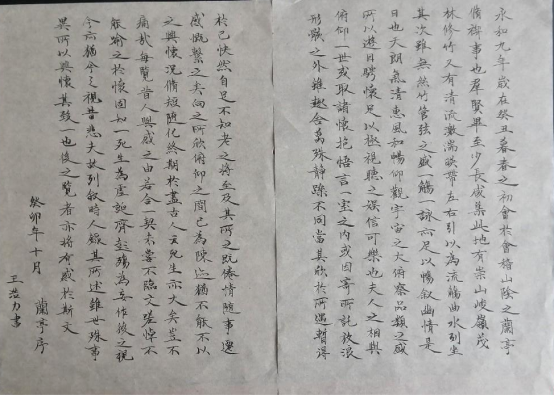 永和九年歲在癸丑暮春之初會於會稽山陰之蘭亭
脩禊事也羣賢畢至少長咸集此地有崇山峻嶺茂
林修竹又有清流激湍暎帶左右引以為流觴曲水列坐
其次雖無絲竹管弦之盛一觴一詠亦足以暢敘幽情是
日也天朗氣清惠風和暢仰觀宇宙之大俯察品類之盛
所以遊目騁懷足以極視聽之娛信可樂也夫人之相與
俯仰一世或取諸懷抱悟言一室之內或因寄所託放浪
形骸之外雖趣舍萬殊靜躁不同當其欣於所遇暫得
於己快然自足不知老之將至及其所之既倦情隨事遷
感慨繫之矣向之所欣俯仰之間已為陳迹猶不能不以
之興懷況脩短隨化終期於盡古人云死生亦大矣豈不
痛哉每覽昔人興感之由若合一契未嘗不臨文嗟悼不
能喻之於懷固知一死生為虛誕齊彭殤為妄作後之視
今亦猶今之視昔悲夫故列敘時人錄其所述雖世殊事
異所以興懷其致一也後之覽者亦將有感於斯文
癸卯年十月 蘭亭序
王浩力書